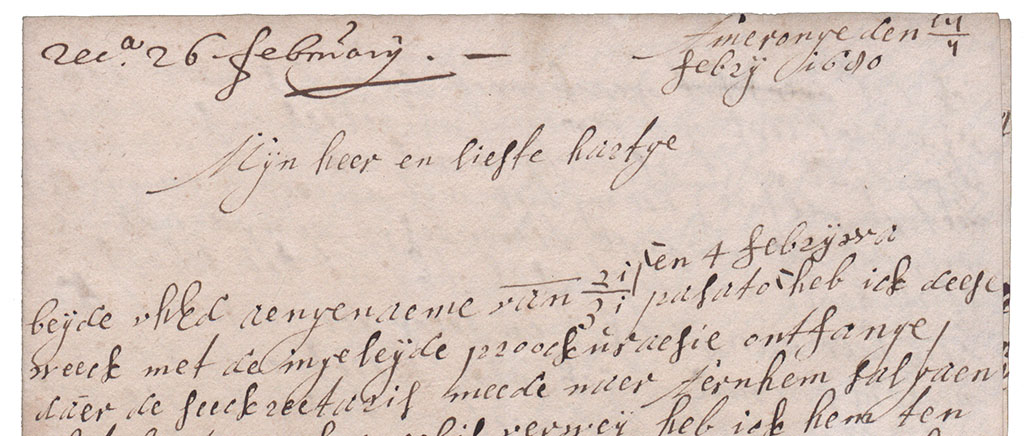 recᵃ. 26 februarÿ. —
Ameronge den 14/4
febrÿ 1680
Mijn heer en liefste hartge
beÿde uhEd aengenaeme van 21/31 en 4 febrÿwa
pasato heb ick deese
weeck met de ingeleÿde proockuraesie ontfange,
daer de seeckreetaris meede naer Aernhem sal gaen
verweÿ heb ick hem ten